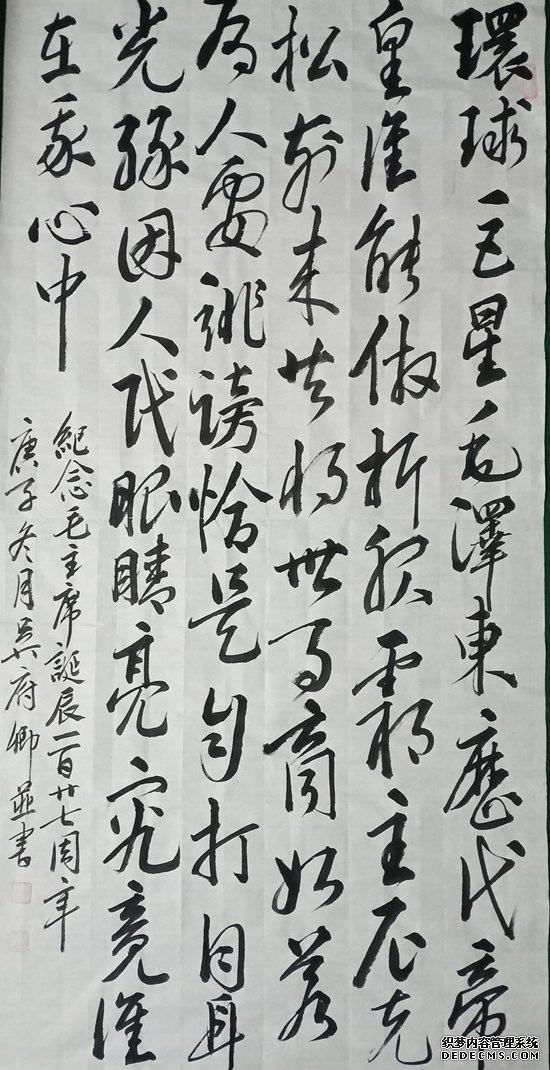 環球一巨星毛澤東歷代帝
皇谁能做折服霸主尼克
松前来共将世事商如若
为人要诽謗恰是自打自耳
光缘因人民眼睛亮究竟谁
在我心中
紀念毛主席誕辰一百廿七周年
庚子冬月吴府卿並書
织梦内容管理系统
DEDECMS.COM